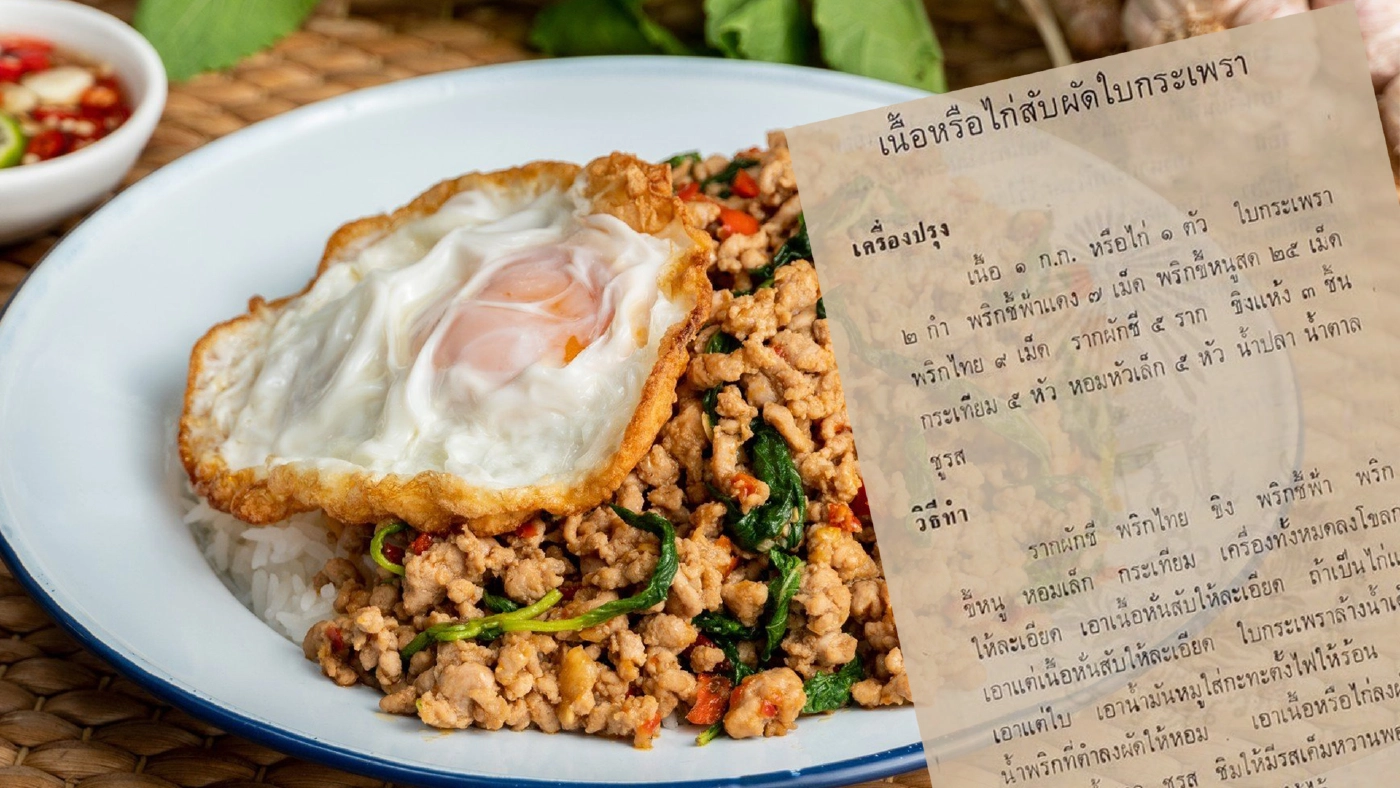 เนื้อหรือไก่สับผัดใบกระเพรา
เครื่องปรุง
เนื้อ ๑ ก.ก. หรือไก่ ๑ ตัว ใบกระเพรา
๒ กำ พริกชี้ฟ้าแดง ๗ เม็ด พริกขี้หนูสด ๒๕ เม็ด
พริกไทย ๙ เม็ด รากผักชี ๕ ราก ขิงแห้ง ๓ ชิ้น
กระเทียม ๕ หัว หอมหัวเล็ก ๕ หัว น้ำปลา น้ำตาล
ชูรส
วิธีทำ
รากผักชี พริกไทย ขิง พริกชี้ฟ้า พริก
ขี้หนู หอมเล็ก กระเทียม เครื่องทั้งหมดลงโขลก
ให้ละเอียด เอาเนื้อหั่นสับให้ละเอียด ถ้าเป็นไก่
เอาแต่เนื้อหั่นสับให้ละเอียด ใบกระเพราล้างน้ำ
เอาแต่ใบ เอาน้ำมันหมูใส่กะทะตั้งไฟให้ร้อน
น้ำพริกที่ตำลงผัดให้หอม เอาเนื้อหรือไก่ลง
ชูรส ชิมให้มีรสเค็มหวาน